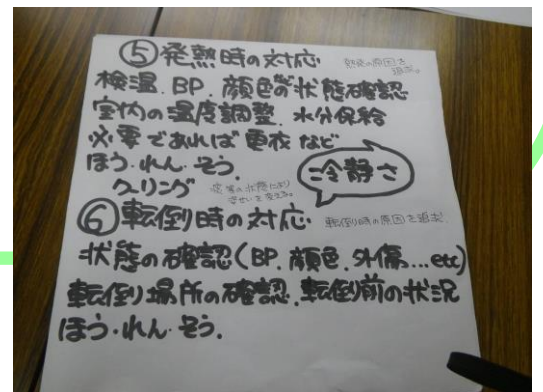 ⑤発熱時の対応
発熱の原因を追求。
検温.BP.顔色等の状態確認
室内の温度調整.水分保給
必要であれば更衣など
ほう.れん.そう.
冷静さ
クーリング
⑥転倒時の対応
転倒時の原因を追求.
状態の確認(BP.顔色.外傷...etc)
転倒場所の確認.転倒前の状況
ほう.れん.そう.